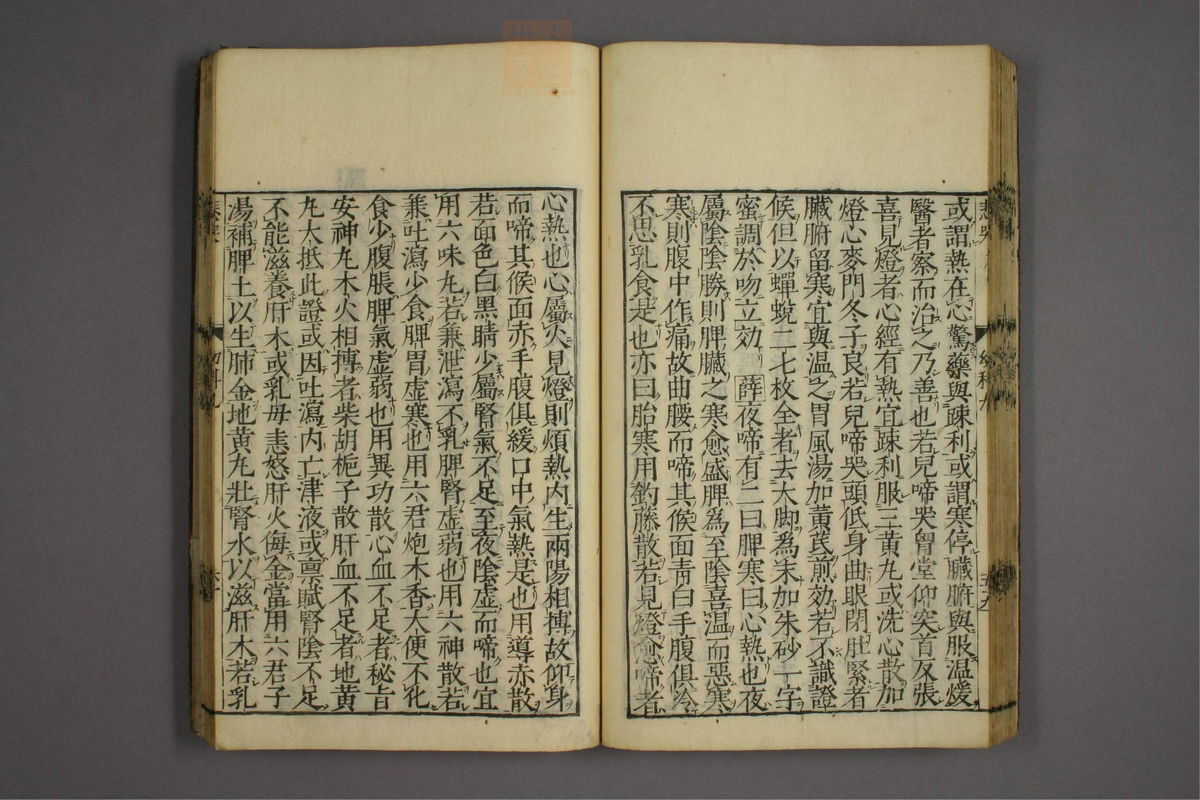 或謂熱在心驚藥與疎利或謂寒停臟腑與服温煖
醫者察而治之乃善也若兒啼哭胷堂仰突首反張
喜見燈者心經有熱宜踈利服三黄丸或洗心散加
燈心麥門冬子良若兒啼哭頭低身曲眼閉肚緊者
臟腑留寒宜與温之胃風湯加黄芪煎効若不識證
候但以蟬蛻二七枚全者去大脚為末加朱砂一字
蜜調於吻立効 薛 夜啼有二曰脾寒曰心熱也夜
屬陰陰勝則脾臟之寒愈盛脾為至陰喜温而惡寒
寒則腹中作痛故曲腰而啼其候面青白手腹俱冷
不思乳食是也亦曰胎寒用鈎藤散若見燈愈啼者
心熱也心屬火見燈則煩熱内生兩陽相搏故仰身
而啼其候面赤手腹俱緩口中氣熱是也用導赤散
若面色白黑睛少屬腎氣不足至夜陰虚而啼也宜
用六味丸若兼泄瀉不乳脾腎虚弱也用六神散若
兼吐瀉少食脾胃虚寒也用六君炮木香大便不化
食少腹脹脾氣虚弱也用異功散心血不足者秘旨
安神丸木火相搏者柴胡梔子散肝血不足者地黄
丸大抵此證或因吐瀉内亡津液或禀賦腎陰不足
不能滋養肝木或乳母恚怒肝火侮金當用六君子
湯補脾土以生肺金地黄丸壯腎水以滋肝木若乳